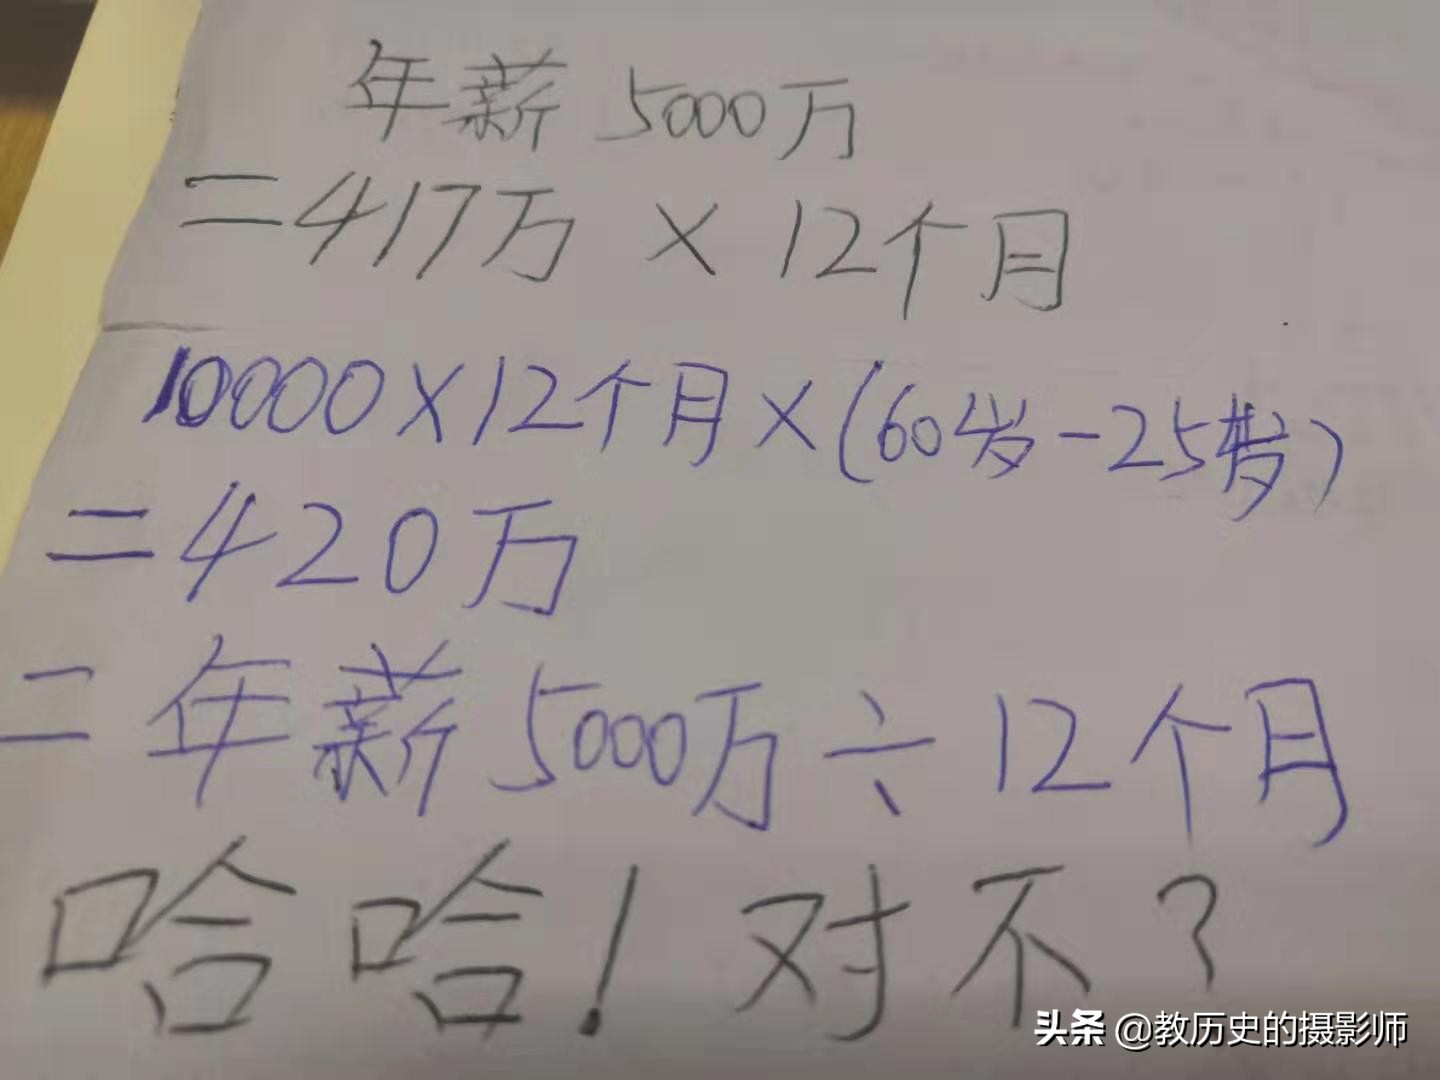 年薪 5000万
=417万 × 12个月
10000×12个月×(60岁-25岁)
=420万
=年薪5000万÷12个月
哈哈!对不?
头条 @教历史的摄影师